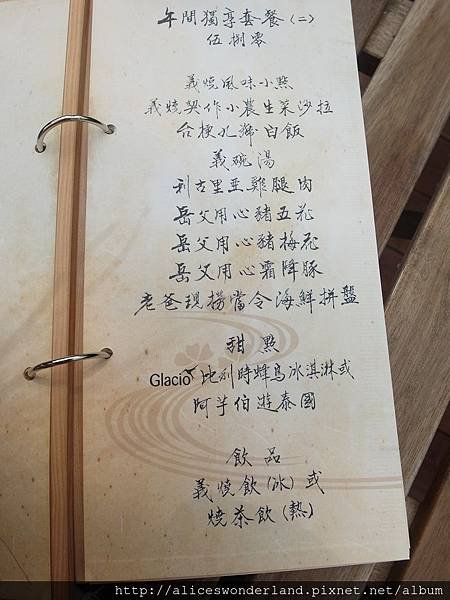 午間獨享套餐(二)
伍捌零
義燒風味小點
義燒契作小農生菜沙拉
台梗九號白飯
義碗湯
利古里亞雞腿肉
岳父用心豬五花
岳父用心豬梅花
岳父用心霜降豚
老爸現撈當令海鮮拼盤
甜點
Glacio 比利時蜂鳥冰淇淋或
阿芋伯遊泰國
飲品
義燒飲(冰)或
燒茶飲(熱)
http://aliceswonderland.pixnet.net/album